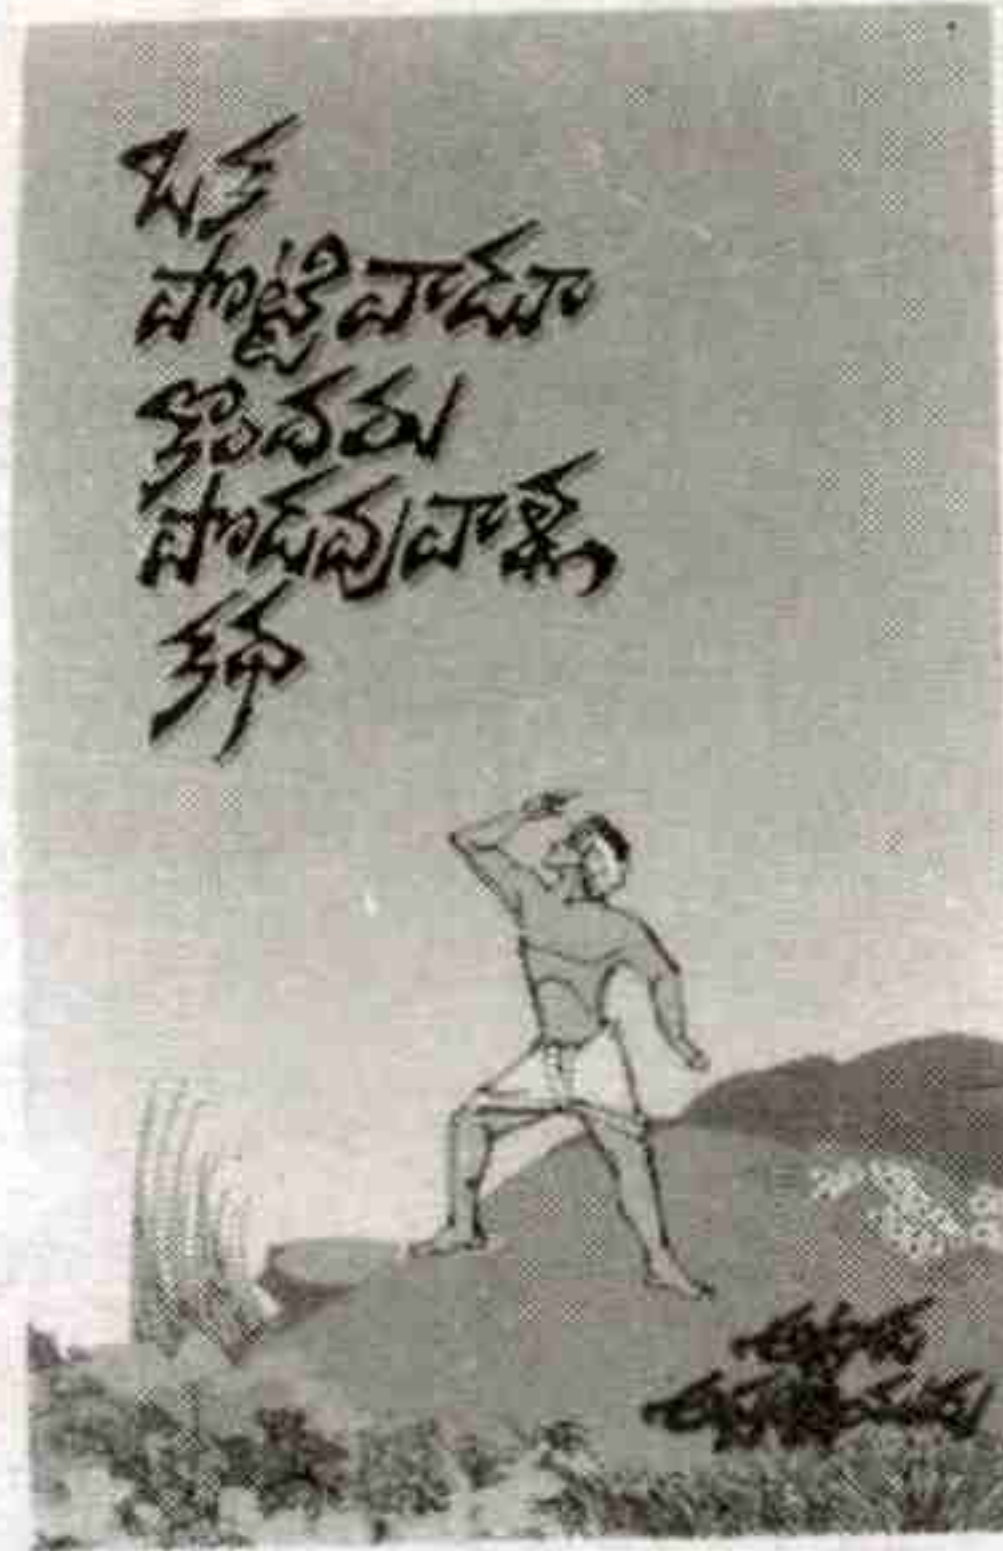 ఒక
పొట్టివాడూ
కొందరు
పొడవువాళ్ల
కథ